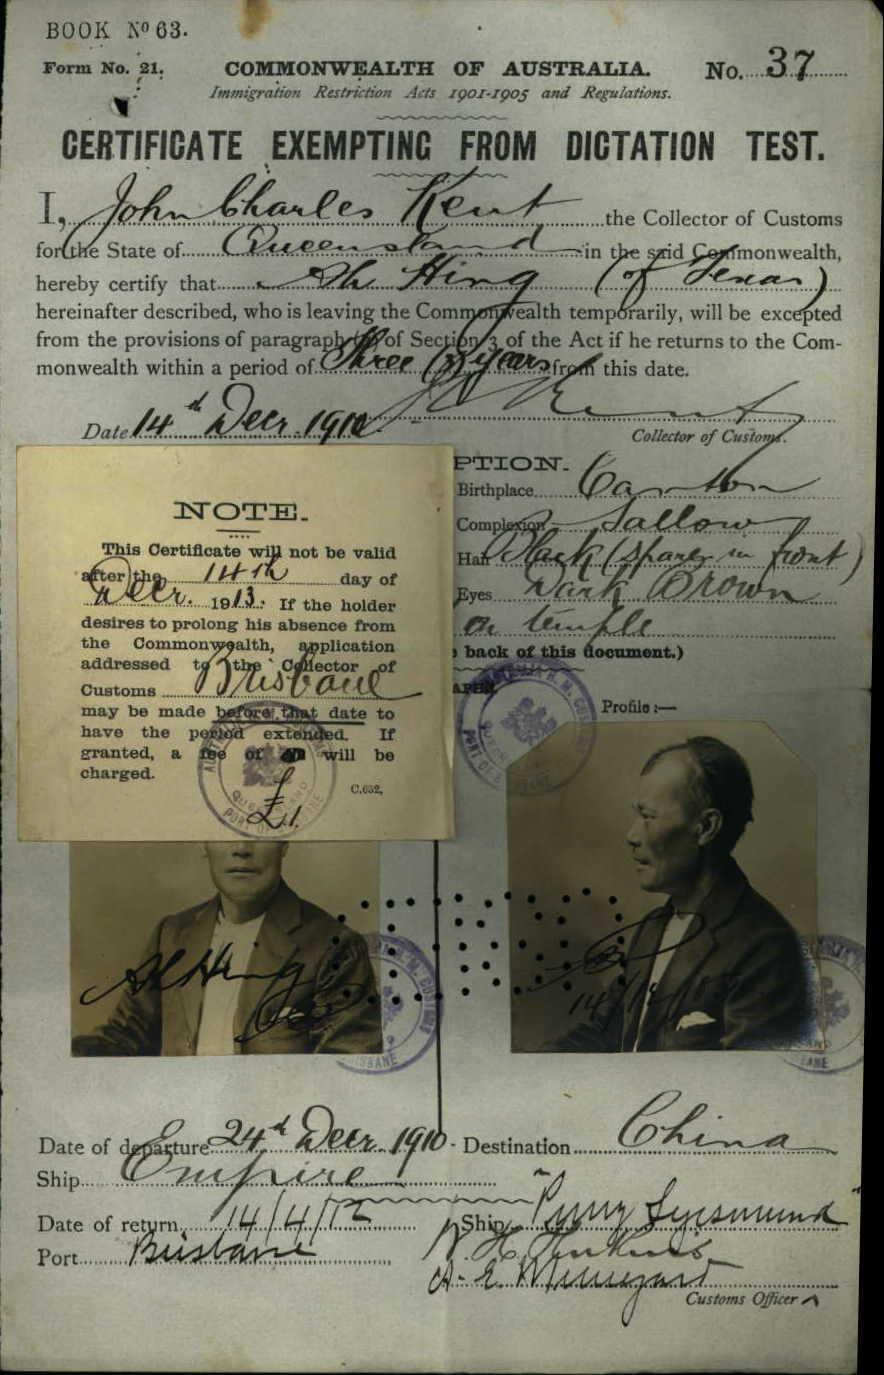 BOOK Nº 63.
Form No. 21. COMMONWEALTH OF AUSTRALIA. No. 37
Immigration Restriction Acts 1901-1905 and Regulations.
CERTIFICATE EXEMPTING FROM DICTATION TEST.
I, John Charles Kent the Collector of Customs
for the State of Queensland in the said Commonwealth,
hereby certify that Ah Hing (of Texas)
hereinafter described, who is leaving the Commonwealth temporarily, will be excepted
from the provisions of paragraph of Section 3 of the Act if he returns to the Com-
monwealth within a period of Three (3) years from this date.
Date 14th Decr. 1910 Kent
Collector of Customs.
PTION.
Birthplace Canton
Complexion Sallow
Hair Black (sparse in front)
Eyes Dark Brown
on temple
back of this document.)
Profile:—
NOTE.
This Certificate will not be valid
after the 14th day of
Decr. 1913. If the holder
desires to prolong his absence from
the Commonwealth, application
addressed to the Collector of
Customs Brisbane
may be made before that date to
have the period extended. If
granted, a fee of will be
charged.
C.652,
£1.
Ah Hing
14/12/
Date of departure 24th Decr. 1910 - Destination China
Ship Empire
Date of return 14/4/12 Ship "Prinz Sigismund"
Port Brisbane
Customs Officer